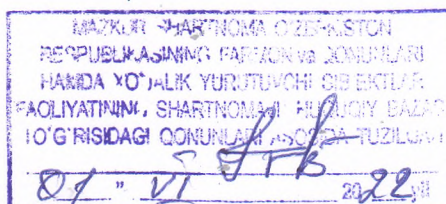 MAZKUR SHARTNOMA O'ZBEKISTON
RESPUBLIKASINING FARMON va QONUNLARI
HAMDA XO'JALIK YURUTUVCHI SUBEKTLAR
FAOLIYATINING SHARTNOMAVIY HUQUQIY BAZASI
TO'G'RISIDAGI QONUNLARI ASOSIDA TUZILGAN
01 " VI 2022 yil